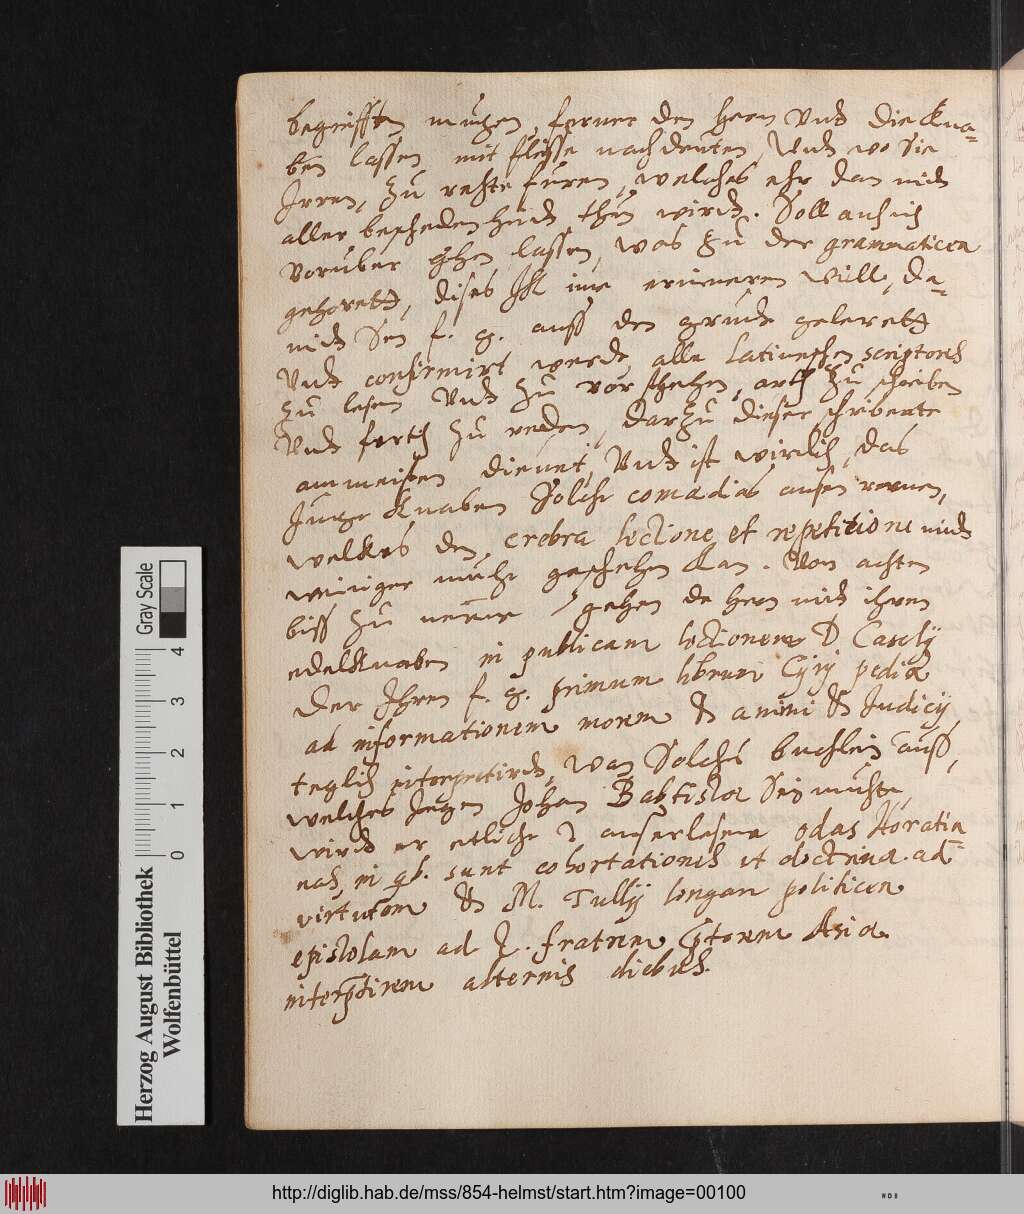 begriffen mugen, ferner den hern Vnd die kna-
ben lassen mit fleisse nachdencken Vnd wo sie
Irren, zu rechte furen, welches ehr dan mid
aller bescheidenheid thun wird. Soll auch nich
voruber gehen lassen, was zu der grammaticen
gehorett, dises Ich ime erinneren will, da-
mid Sen f. g. auss den grunde gelerett
Vnd confirmirt werde alle Latineschen scriptores
zu lesen Vnd zu vorstehen, artich zu schreiben
Vnd fertich zu reden, darzu dieser
am meisten dienet, Vnd ist wirdich, das
Junge knaben solche comœdias ausen
welches den, crebra lectione et repetitione nicht
weiniger muhe geschehen kan. Von achten
biss zu neune gehen de hern mid ihren
edelknaben in publicam lectionem D Caselij
Der Ihren f. g. primum librum Cyri pediæ
ad informationem morum & animi & Judicij
teglich interpretird, wan Solches buchlein auss,
welches Iegen Johan Baptistæ Sein muchte,
wird er etliche auserlesene odas Horatia
nas, in qb. sunt cohortationes et doctrinæ ad
virtutem & M. Tullij longam politicen
epistolam ad Q. fratrem, prætorem Asiæ
interpretirem alternis diebus.
Gray Scale
4
3
2
1
0
Herzog August Bibliothek
Wolfenbüttel
http://diglib.hab.de/mss/854-helmst/start.htm?image=00100